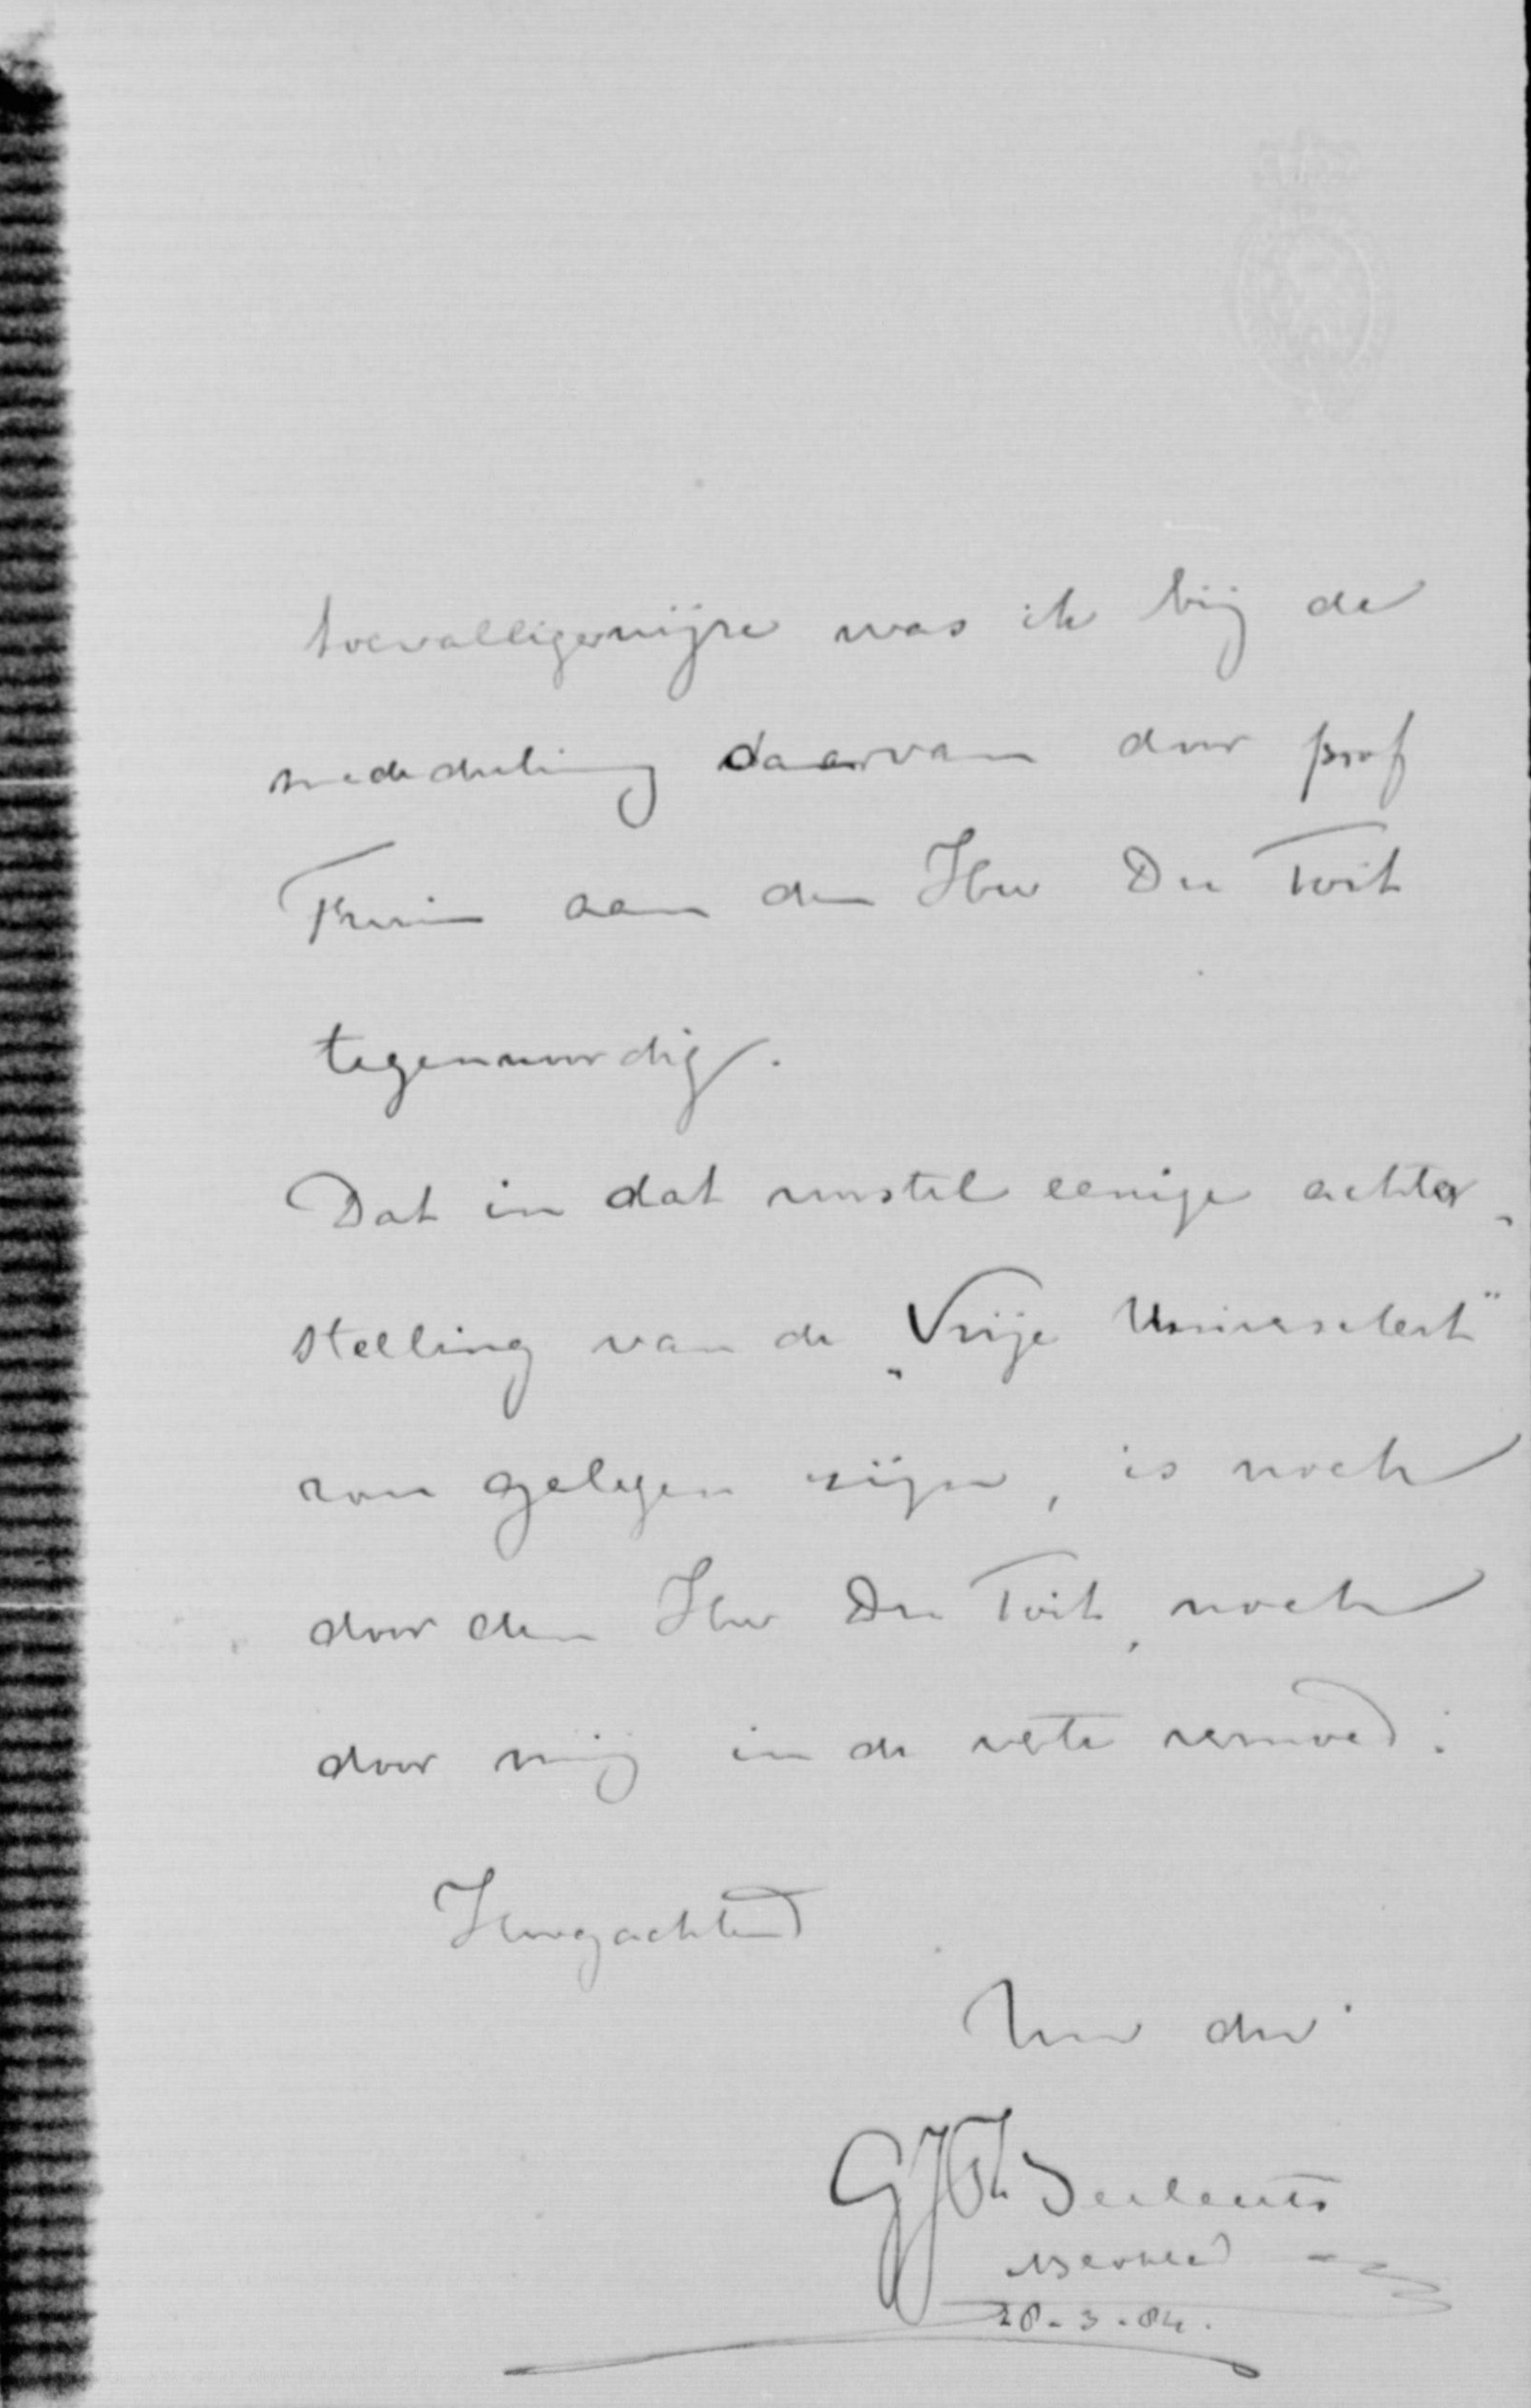 toevalligerwijze was ik bij de
mededeeling daarvan door prof
Fruin aan den Heer Du Toit
tegenwoordig.
Dat in dat voorstel eenige achter„
stelling van de „Vrije Universiteit"
zou gelegen zijn, is noch
door den Heer Du Toit, noch
door mij in de verte vermoed.
Hoogachtend
Uw dw
GJTh Beelaerts
28-3-84.